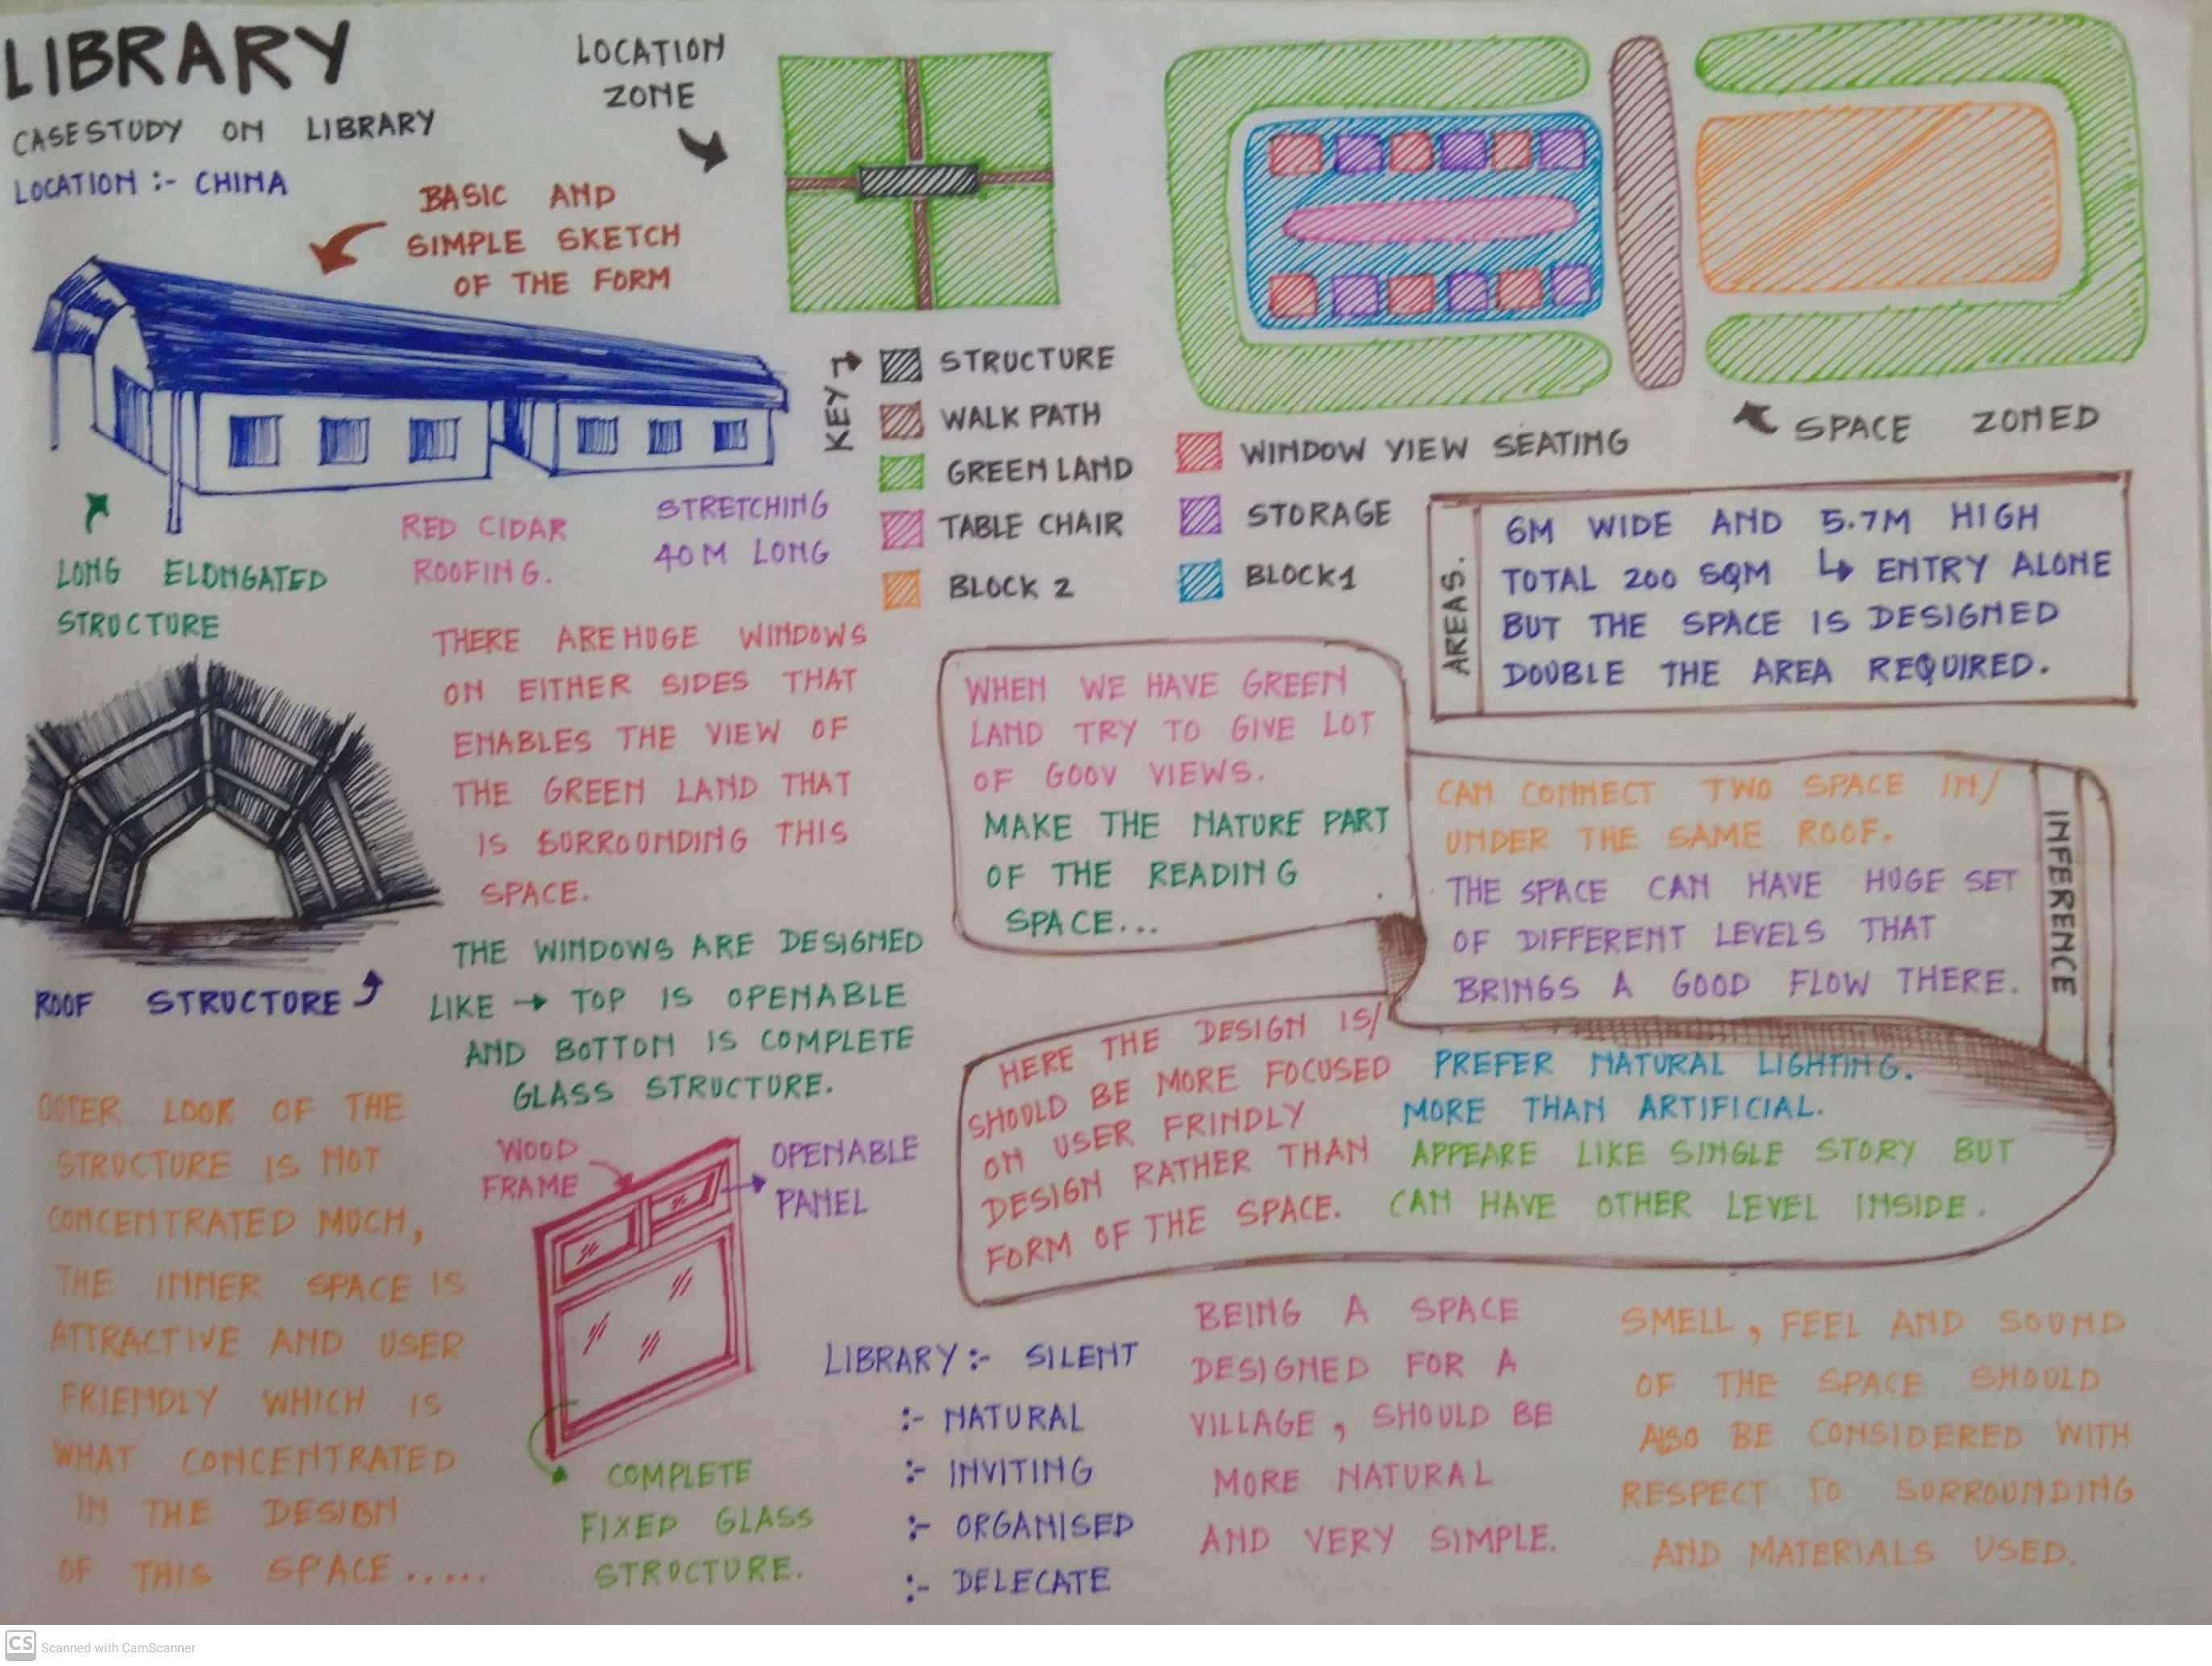 LIBRARY
CASESTUDY ON LIBRARY
LOCATION :- CHINA
BASIC AND
SIMPLE SKETCH
OF THE FORM
LOCATION
ZONE
KEY
STRUCTURE
WALK PATH
GREEN LAND
TABLE CHAIR
BLOCK 2
WINDOW VIEW SEATING
STORAGE
BLOCK1
SPACE ZONED
LONG ELONGATED
STRUCTURE
RED CIDAR
ROOFING.
STRETCHING
40M LONG
AREAS.
6M WIDE AND 5.7M HIGH
TOTAL 200 SQM ↳ ENTRY ALONE
BUT THE SPACE IS DESIGNED
DOUBLE THE AREA REQUIRED.
THERE ARE HUGE WINDOWS
ON EITHER SIDES THAT
ENABLES THE VIEW OF
THE GREEN LAND THAT
IS SURROUNDING THIS
SPACE.
THE WINDOWS ARE DESIGNED
LIKE → TOP IS OPENABLE
AND BOTTOM IS COMPLETE
GLASS STRUCTURE.
ROOF STRUCTURE
WHEN WE HAVE GREEN
LAND TRY TO GIVE LOT
OF GOOV VIEWS.
MAKE THE NATURE PART
OF THE READING
SPACE...
INFERENCE
CAN CONNECT TWO SPACE IN/
UNDER THE SAME ROOF.
THE SPACE CAN HAVE HUGE SET
OF DIFFERENT LEVELS THAT
BRINGS A GOOD FLOW THERE.
HERE THE DESIGN IS/
SHOULD BE MORE FOCUSED
ON USER FRINDLY
DESIGN RATHER THAN
FORM OF THE SPACE.
PREFER NATURAL LIGHTING.
MORE THAN ARTIFICIAL.
APPEARE LIKE SINGLE STORY BUT
CAN HAVE OTHER LEVEL INSIDE.
OUTER LOOK OF THE
STRUCTURE IS NOT
CONCENTRATED MUCH,
THE INNER SPACE IS
ATTRACTIVE AND USER
FRIENDLY WHICH IS
WHAT CONCENTRATED
IN THE DESIGN
OF THIS SPACE.....
WOOD
FRAME
OPENABLE
PANEL
COMPLETE
FIXED GLASS
STRUCTURE.
LIBRARY :- SILENT
:- NATURAL
:- INVITING
:- ORGANISED
:- DELECATE
BEING A SPACE
DESIGNED FOR A
VILLAGE, SHOULD BE
MORE NATURAL
AND VERY SIMPLE.
SMELL, FEEL AND SOUND
OF THE SPACE SHOULD
ALSO BE CONSIDERED WITH
RESPECT TO SURROUNDING
AND MATERIALS USED.
CS Scanned with CamScanner